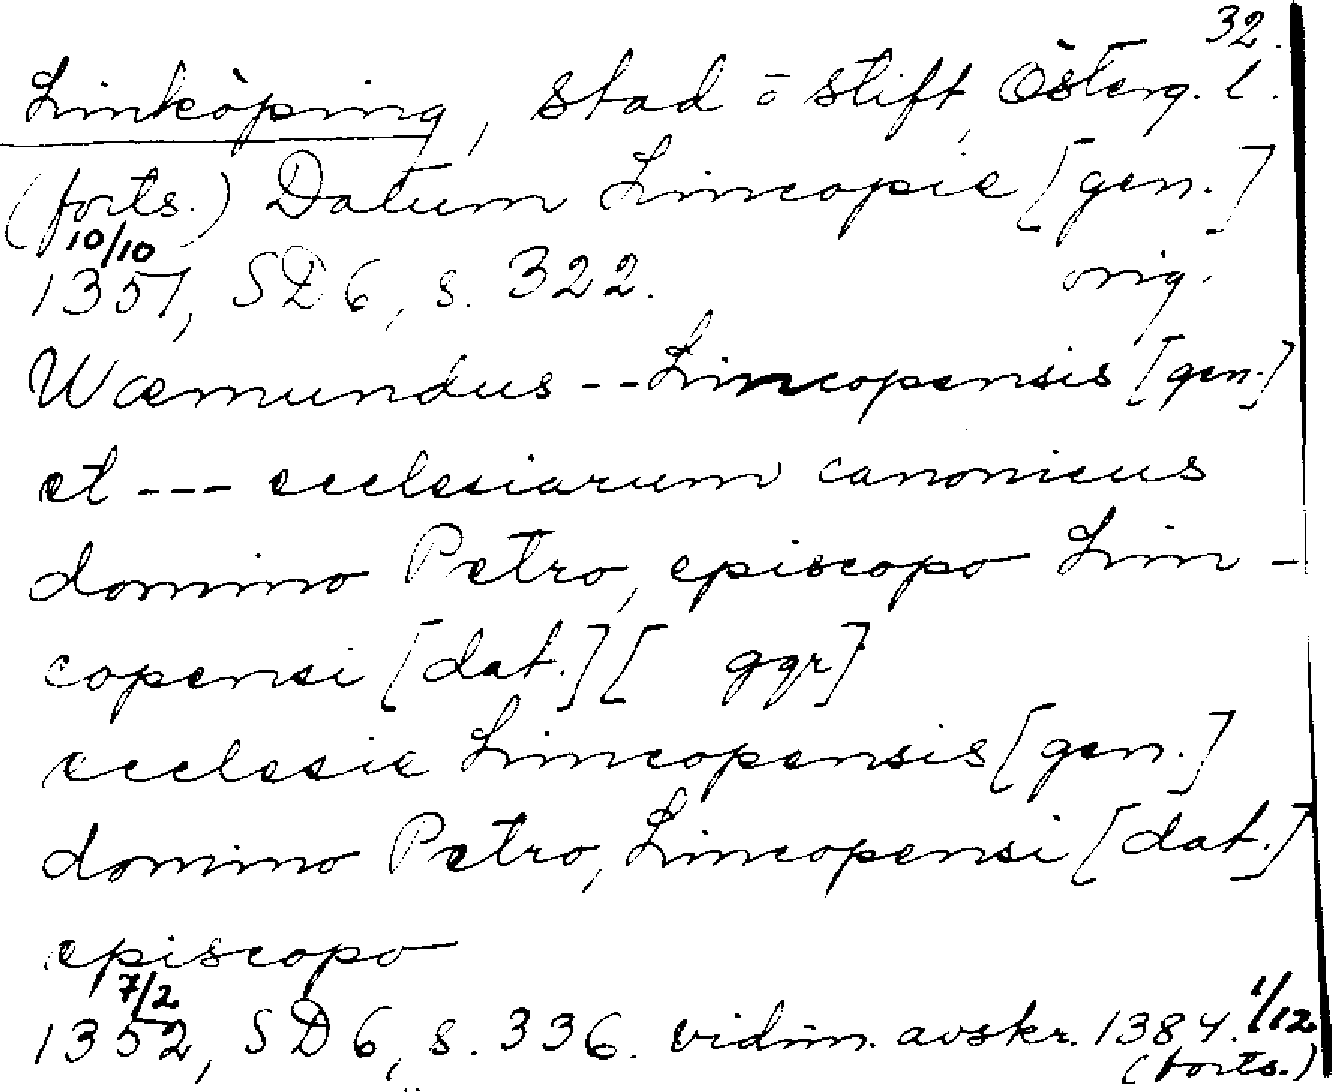 32.
Linköping, stad o stift, Österg. l.
(forts.) Datum Lincopie [gen.]
10/10
1351, SD 6, s. 322. orig.
Wæmundus -- Lincopensis [gen.]
et --- ecclesiarum canonicus
domino Petro, episcopo Lin-
copensi [dat.] [ ggr]
ecclesie Lincopensis [gen.]
domino Petro, Lincopensi [dat.]
episcopo
7/2
1352, SD 6, s. 336. vidim. avskr. 1384. 1/12
(forts.)